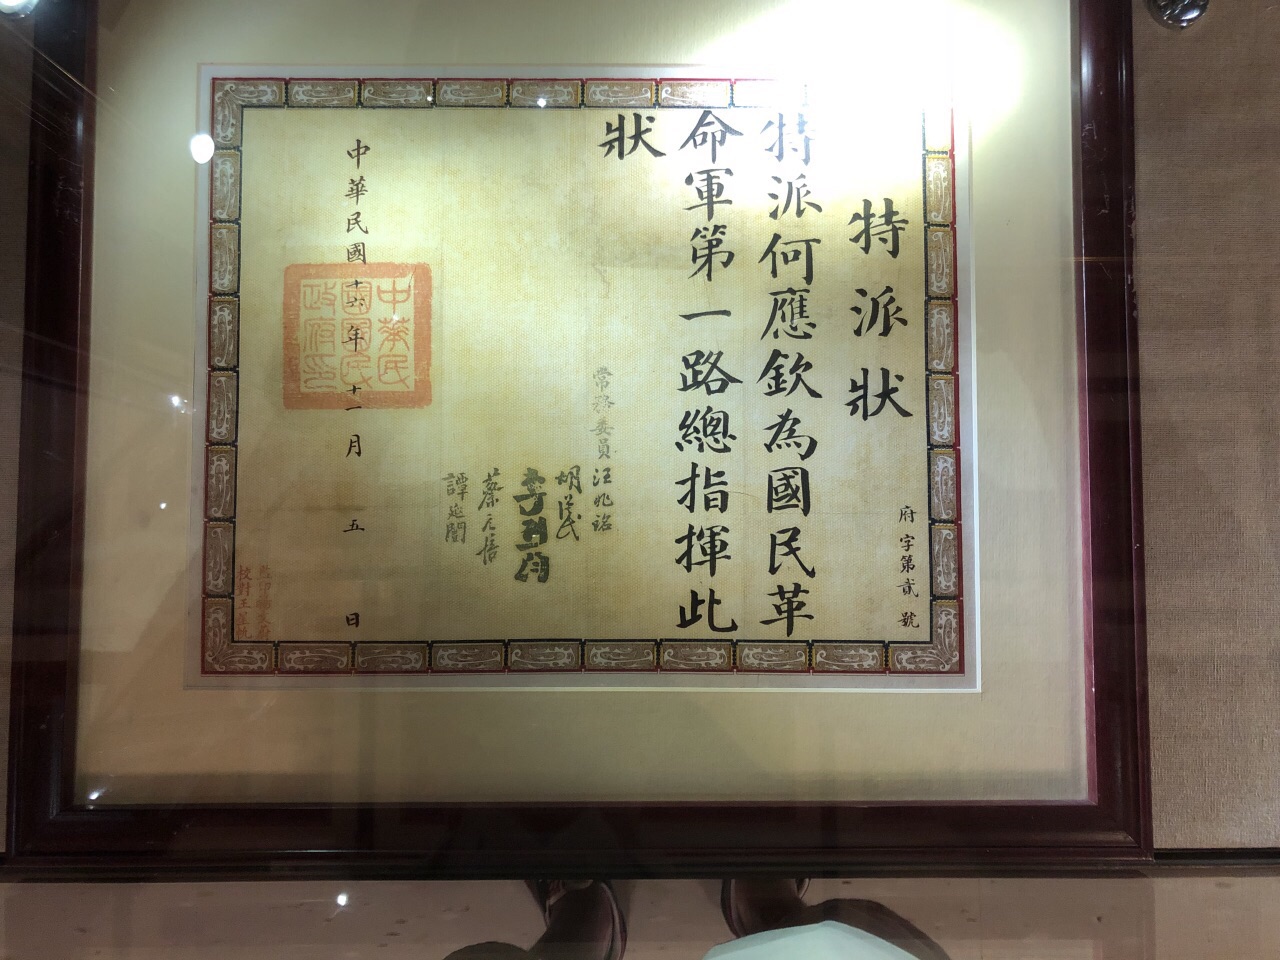 特派狀
府字第貳號
特派何應欽為國民革
命軍第一路總指揮此
狀
常務委員 汪兆銘
胡漢民
李烈鈞
蔡元培
譚延闓
中華民國十六年十一月五日
中華民
國國民
政府印
校對王